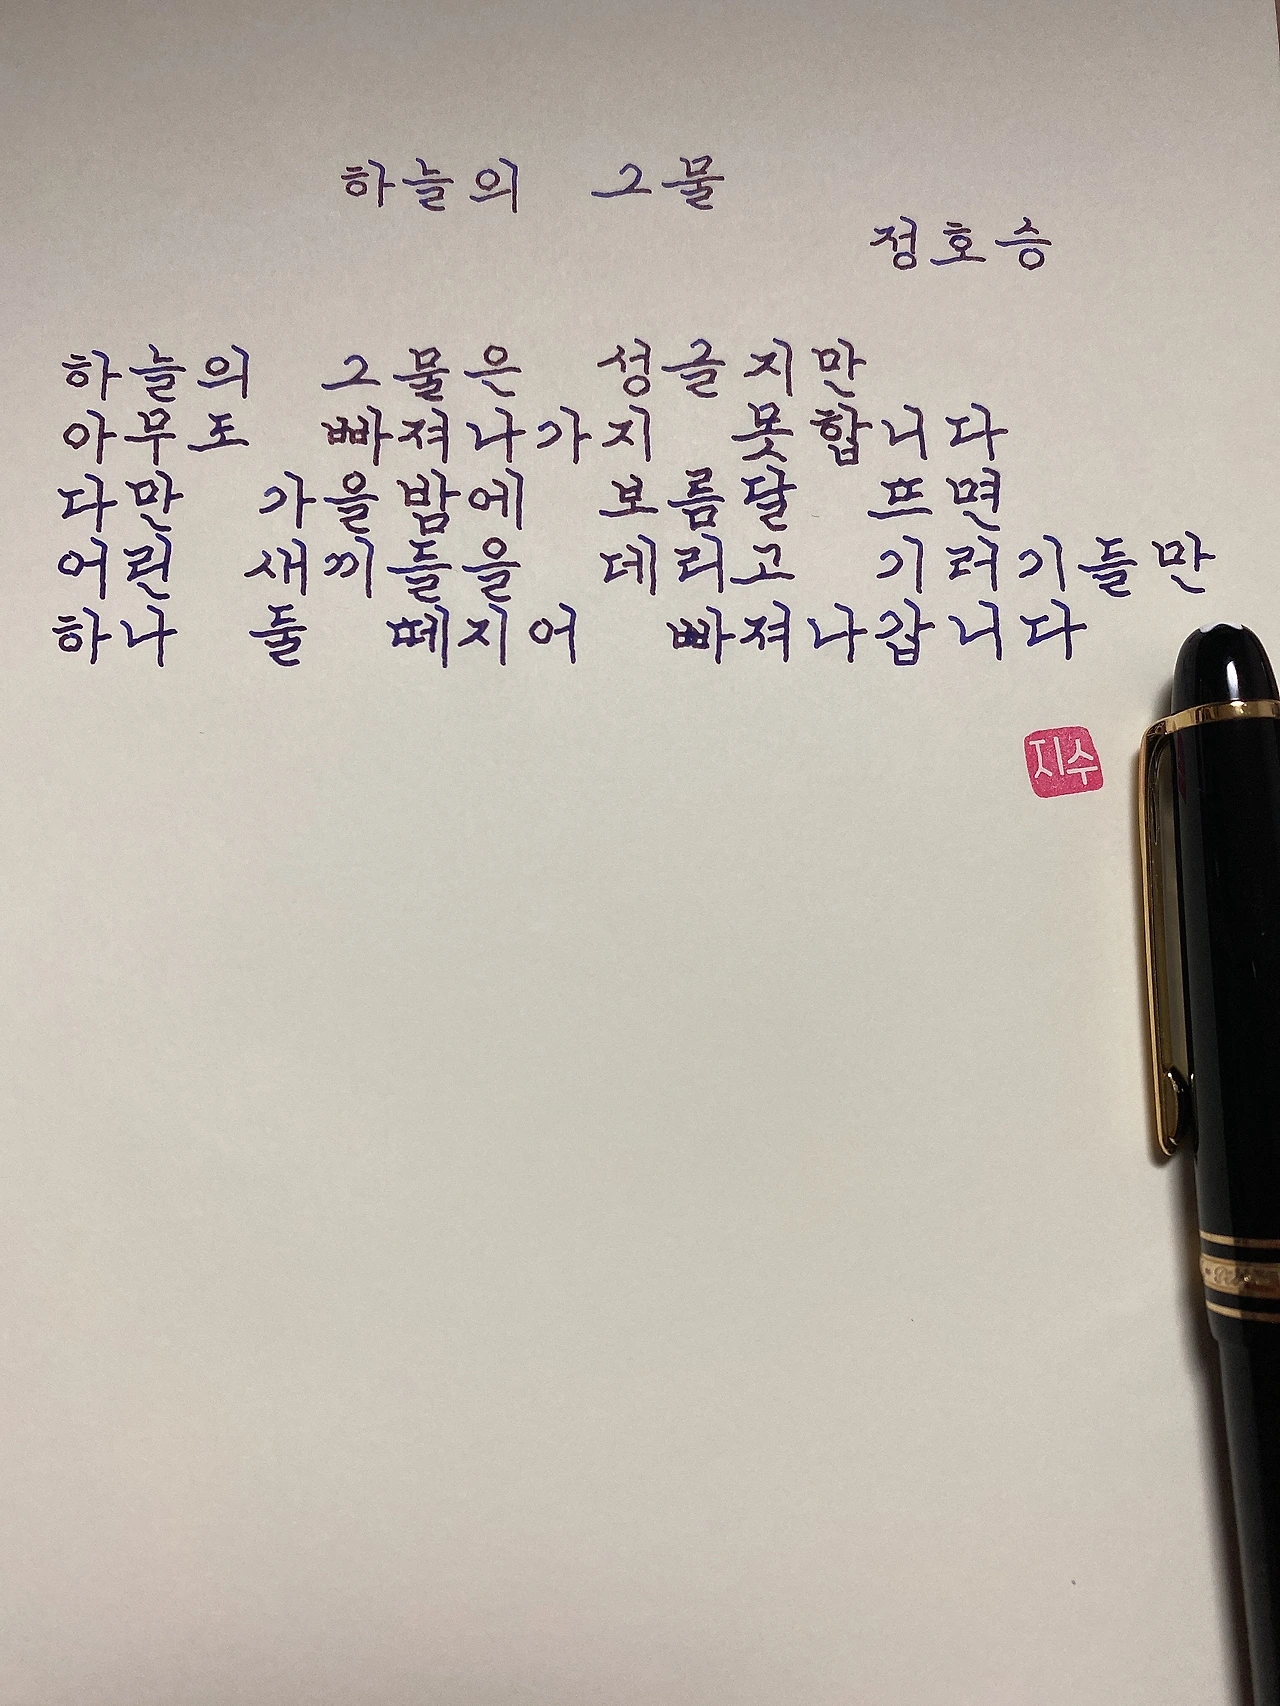 하늘의 그물
정호승
하늘의 그물은 성글지만
아무도 빠져나가지 못합니다
다만 가을밤에 보름달 뜨면
어린 새끼들을 데리고 기러기들만
하나 둘 떼지어 빠져나갑니다
지수